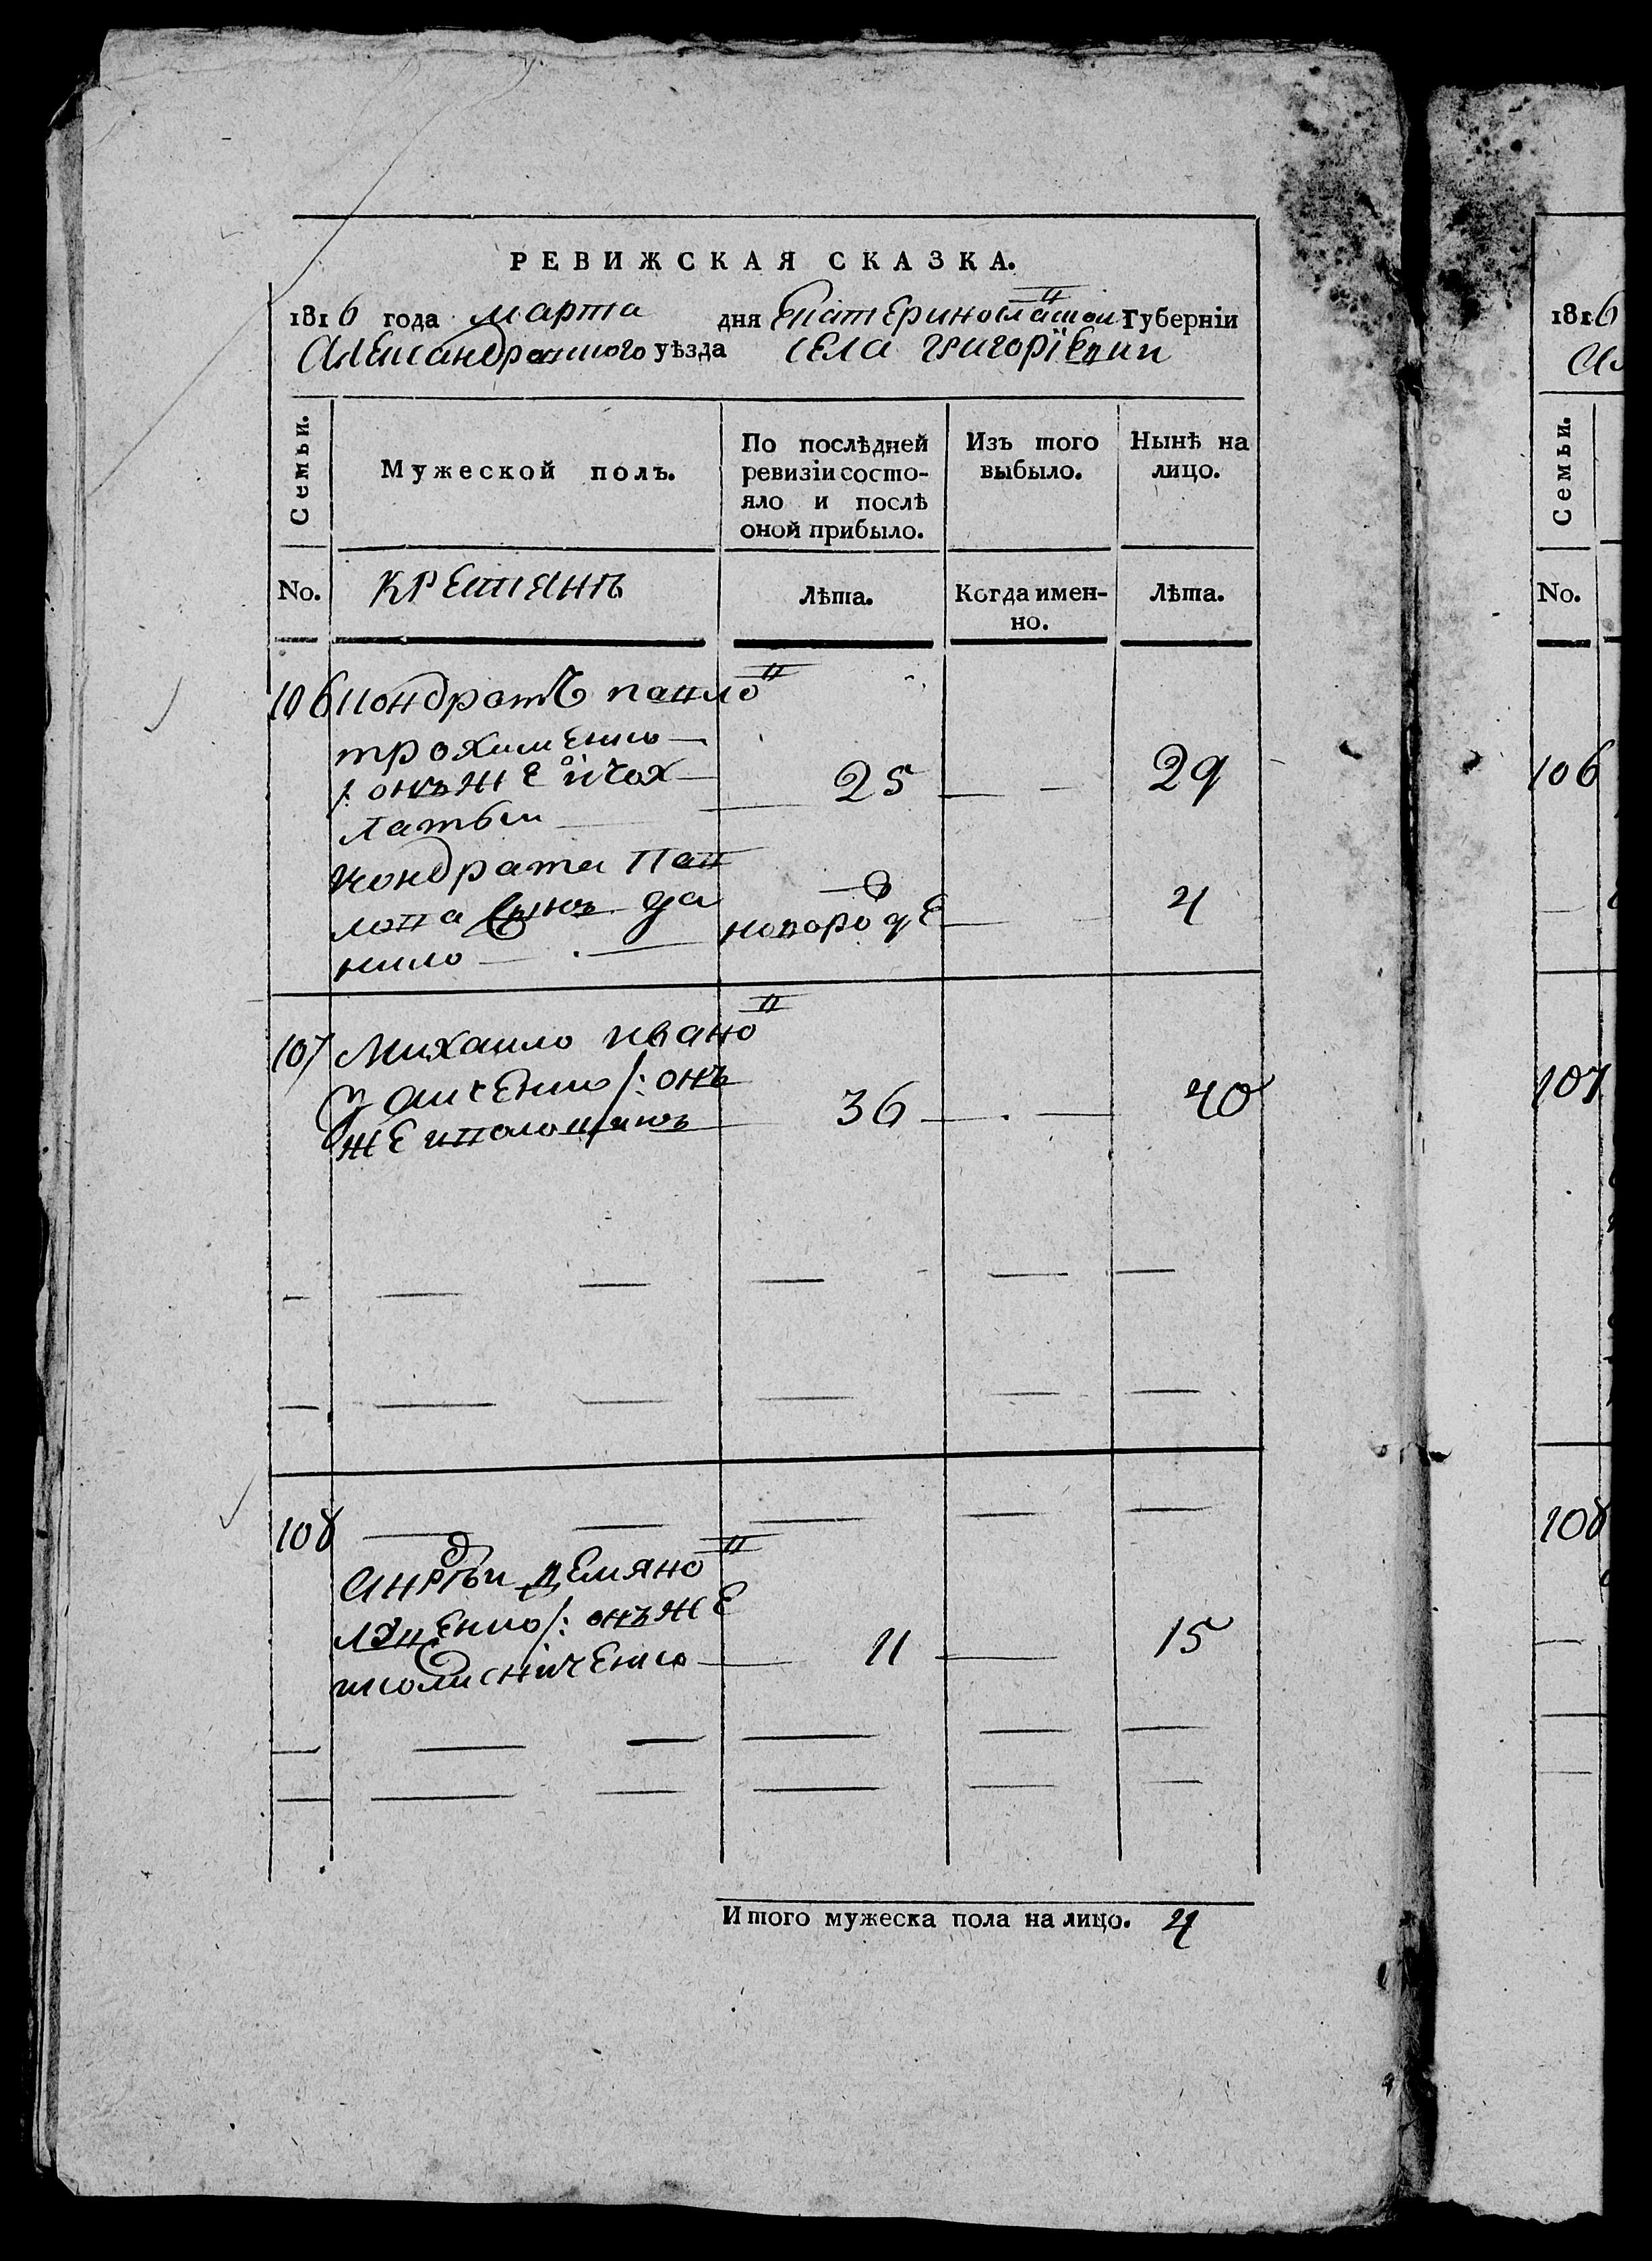 РЕВИЖСКАЯ СКАЗКА.
1816 года марта дня Екатеринославской Губерніи
Александровского уѣзда села григорїевки
Семьи.
Мужеской полъ.
По послѣдней ревизіи состо-
яло и послѣ
оной прибыло.
Изъ того
выбыло.
Нынѣ на
лицо.
No.
крестянъ
Лѣта.
Когда имен-
но.
Лѣта.
106 кондратъ павловъ
трохименко
/: онъ же
25 29
латыи
кондрата пав
лова сынъ да
нило
новороде 4
107 михаило ивановъ
зайченко /: онъ
же
36 40
108
андрѣи демяновъ
лященко /: онъ же
11 15
Итого мужеска пола на лицо. 4
1816
Семьи.
No.
106
107
108